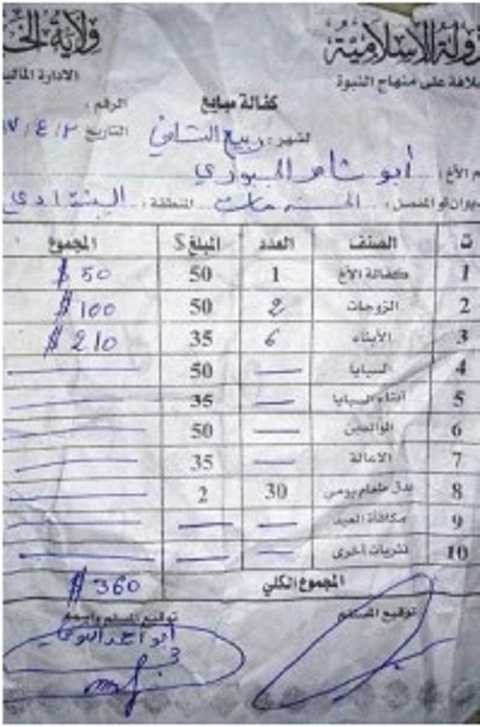 دولة الإسلامية ولاية
خلافة على منهاج النبوة الادارة المالية
كفالة مبايع الرقم :
لشهر : ربيع الثاني التاريخ ٢ / ٤ /
م الأخ : أبو الجبوري
المنطقة :
ت الصنف العدد المبلغ $ المجموع
1 كفالة الأخ 1 50 $ 50
2 الزوجات 2 50 $ 100
3 الأبناء 6 35 $ 210
4 السبايا 50
5 أبناء السبايا 35
6 الوالدين 50
7 الاعالة 35
8 بدل طعام يومي 30 2
9 مكافأة العيد
10 نثريات أخرى
المجموع الكلي $ 360
توقيع المستلم توقيع المسلم واسمه
أبو أحمد